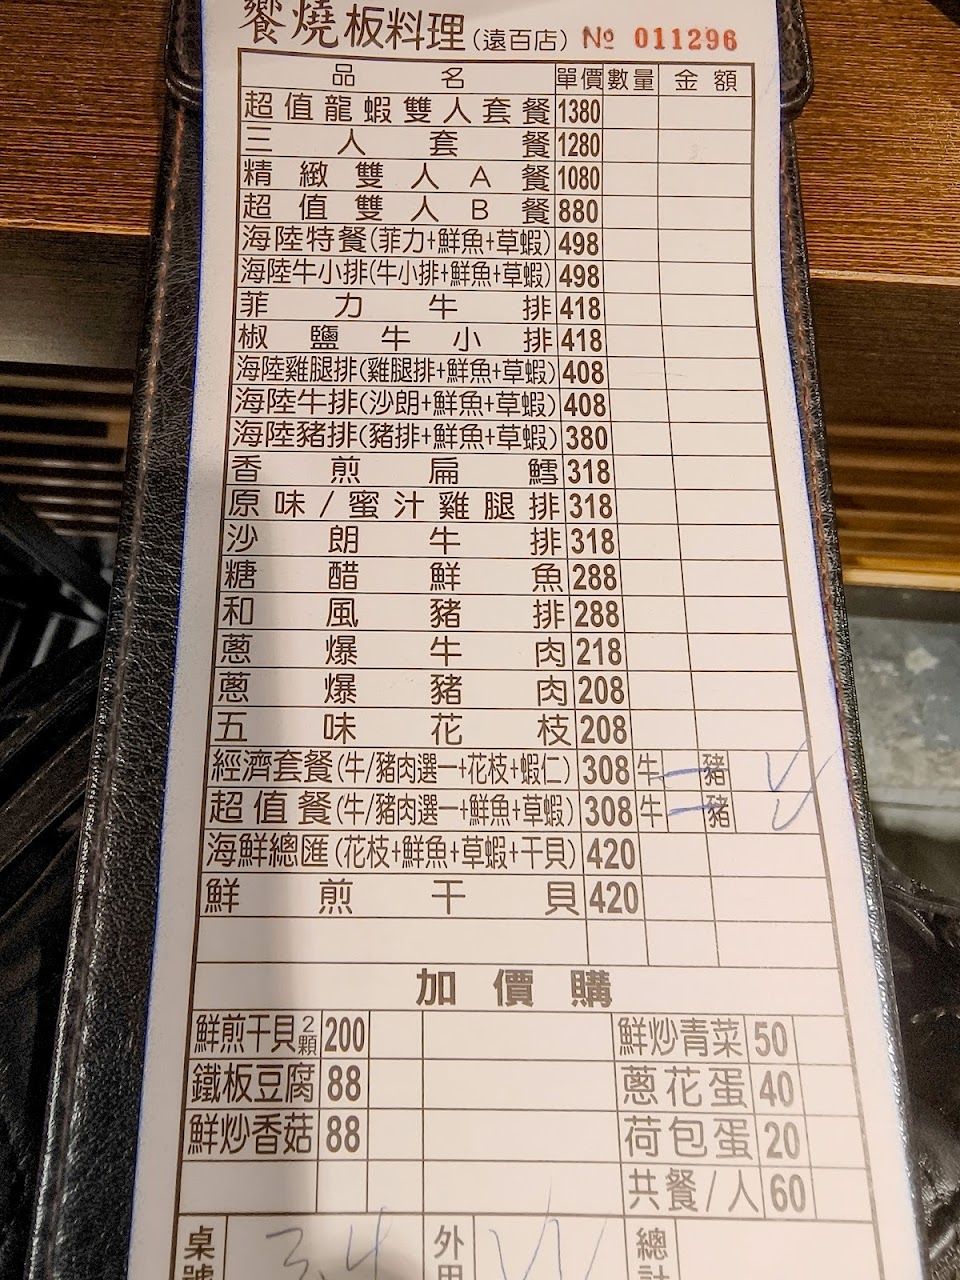 饗燒板料理(遠百店) № 011296
品名 單價 數量 金額
超值龍蝦雙人套餐 1380
三人套餐 1280
精緻雙人A餐 1080
超值雙人B餐 880
海陸特餐(菲力+鮮魚+草蝦) 498
海陸牛小排(牛小排+鮮魚+草蝦) 498
菲力牛排 418
椒鹽牛小排 418
海陸雞腿排(雞腿排+鮮魚+草蝦) 408
海陸牛排(沙朗+鮮魚+草蝦) 408
海陸豬排(豬排+鮮魚+草蝦) 380
香煎扁鱈 318
原味/蜜汁雞腿排 318
沙朗牛排 318
糖醋鮮魚 288
和風豬排 288
蔥爆牛肉 218
蔥爆豬肉 208
五味花枝 208
經濟套餐(牛/豬肉選一+花枝+蝦仁) 308 牛 豬
超值餐(牛/豬肉選一+鮮魚+草蝦) 308 牛 豬
海鮮總匯(花枝+鮮魚+草蝦+干貝) 420
鮮煎干貝 420
加價購
鮮煎干貝2顆 200 鮮炒青菜 50
鐵板豆腐 88 蔥花蛋 40
鮮炒香菇 88 荷包蛋 20
共餐/人 60
桌號 外 總計